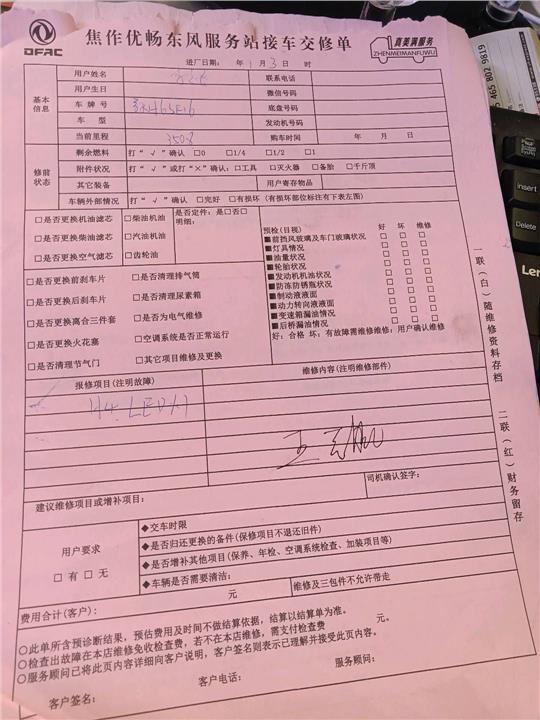 DFAC
焦作优畅东风服务站接车交修单
真美满服务
ZHENMEIMANFUWU
进厂日期: 年 1 月 3 日 时
基本信息
用户姓名 联系电话
用户生日 微信号码
车牌号 底盘号码
车型 发动机号码
当前里程 3508 购车时间 年 月 日
修前状态
剩余燃料 打“√”确认 □0 □1/4 □1/2 □1
附件状况 打“√”或打“×”确认:□工具 □灭火器 □备胎 □千斤顶
其它装备 用户寄存物品
车辆外部情况 打“√”确认 □完好 □有损坏(有损坏部位标注有下表左图)
□是否更换机油滤芯 □柴油机油 是否定件:是□否□
明细:
□是否更换柴油滤芯 □汽油机油
□是否更换空气滤芯 □齿轮油
预检(目视) 好 坏 维修
■前挡风玻璃及车门玻璃状况 □ □ □
■灯具情况 □ □ □
■油量状况 □ □ □
■轮胎状况 □ □ □
■发动机机油状况 □ □ □
■防冻防锈瓶状况 □ □ □
■制动液液面 □ □ □
■动力转向液液面 □ □ □
■变速箱漏油情况 □ □ □
■后桥漏油情况 □ □ □
好:合格 坏:有故障需维修维修:用户确认维修
□是否更换前刹车片 □是否清理排气筒
□是否更换后刹车片 □是否清理尿素箱
□是否更换离合三件套 □是否为电气维修
□是否更换火花塞 □空调系统是否正常运行
□是否清理节气门 □其它项目维修及更换
报修项目(注明故障) 维修内容(注明维修部件)
H4 LED大灯
司机确认签字:
建议维修项目或增补项目:
用户要求
□有 □无
◆交车时限
◆是否归还更换的备件(保修项目不退还旧件)
◆是否增补其他项目(保养、年检、空调系统检查、加装项目等)
◆车辆是否需要清洁: 维修及三包件不允许带走
费用合计(客户): 元
○此单所含预诊断结果,预估费用及时间不做结算依据,结算以结算单为准。
○检查出故障在本店维修免收检查费,若不在本店维修,需支付检查费 元。
○服务顾问已将此页内容详细向客户说明,客户签名则表示已理解并接受此页内容。
客户签名: 客户电话: 服务顾问:
一联(白)随维修资料存档 二联(红)财务留存
465 802 9819
Insert
Delete
Len